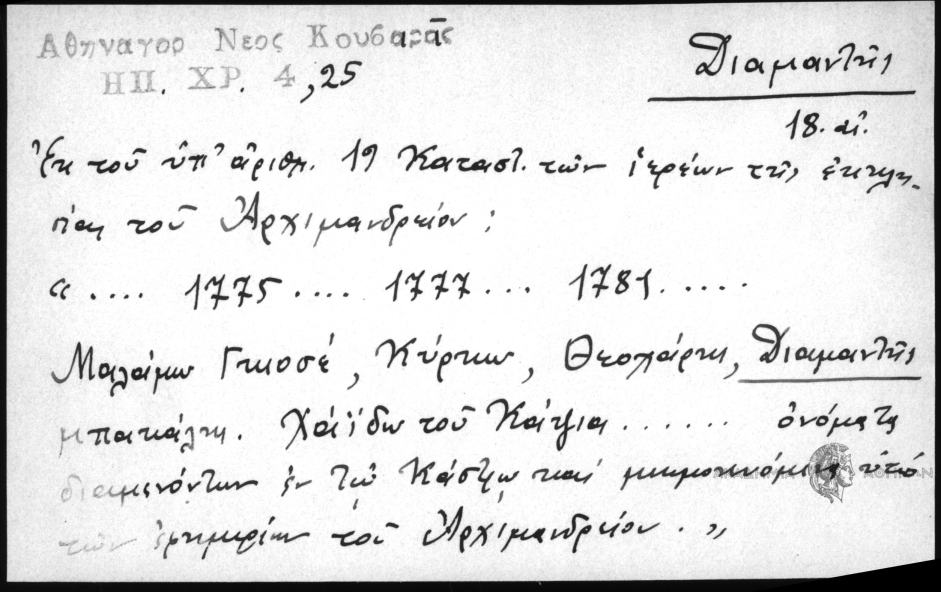 Αθηναγορ Νεος Κουβαρᾶς
ΗΠ. ΧΡ. 4, 25
Διαμαντῆς
18. αἰ.
Ἐκ τοῦ ὑπ' ἀριθμ. 19 Καταστ. τῶν ἱερέων τῆς ἐκκλη-
σίας τοῦ Ἀρχιμανδρείου :
« .... 1775 .... 1777 ... 1781 .....
Μαλάμω Γκιοσέ, Κύρκω, Θεοχάρης, Διαμαντῆς
μπακάλης. Χάϊδω τοῦ Κάτζια ....... ὀνόματα
διαμενόντων ἐν τῷ Κάστρῳ καὶ μνημονευόμενα ὑπὸ
τῶν ἐφημερίων τοῦ Ἀρχιμανδρείου . »